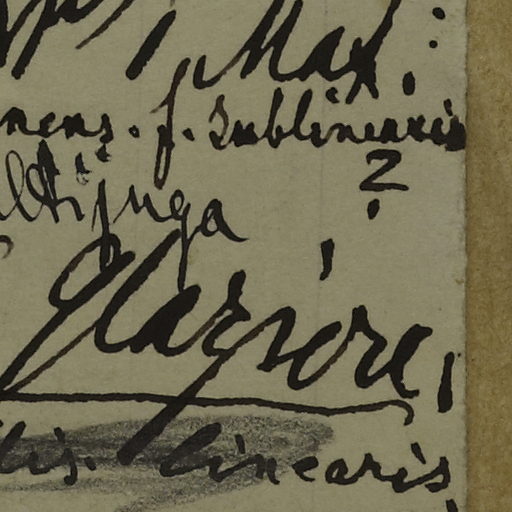 , Max.:
mens. f. sublinearis
ltijuga ?
Glaziou,
lis. linearis,